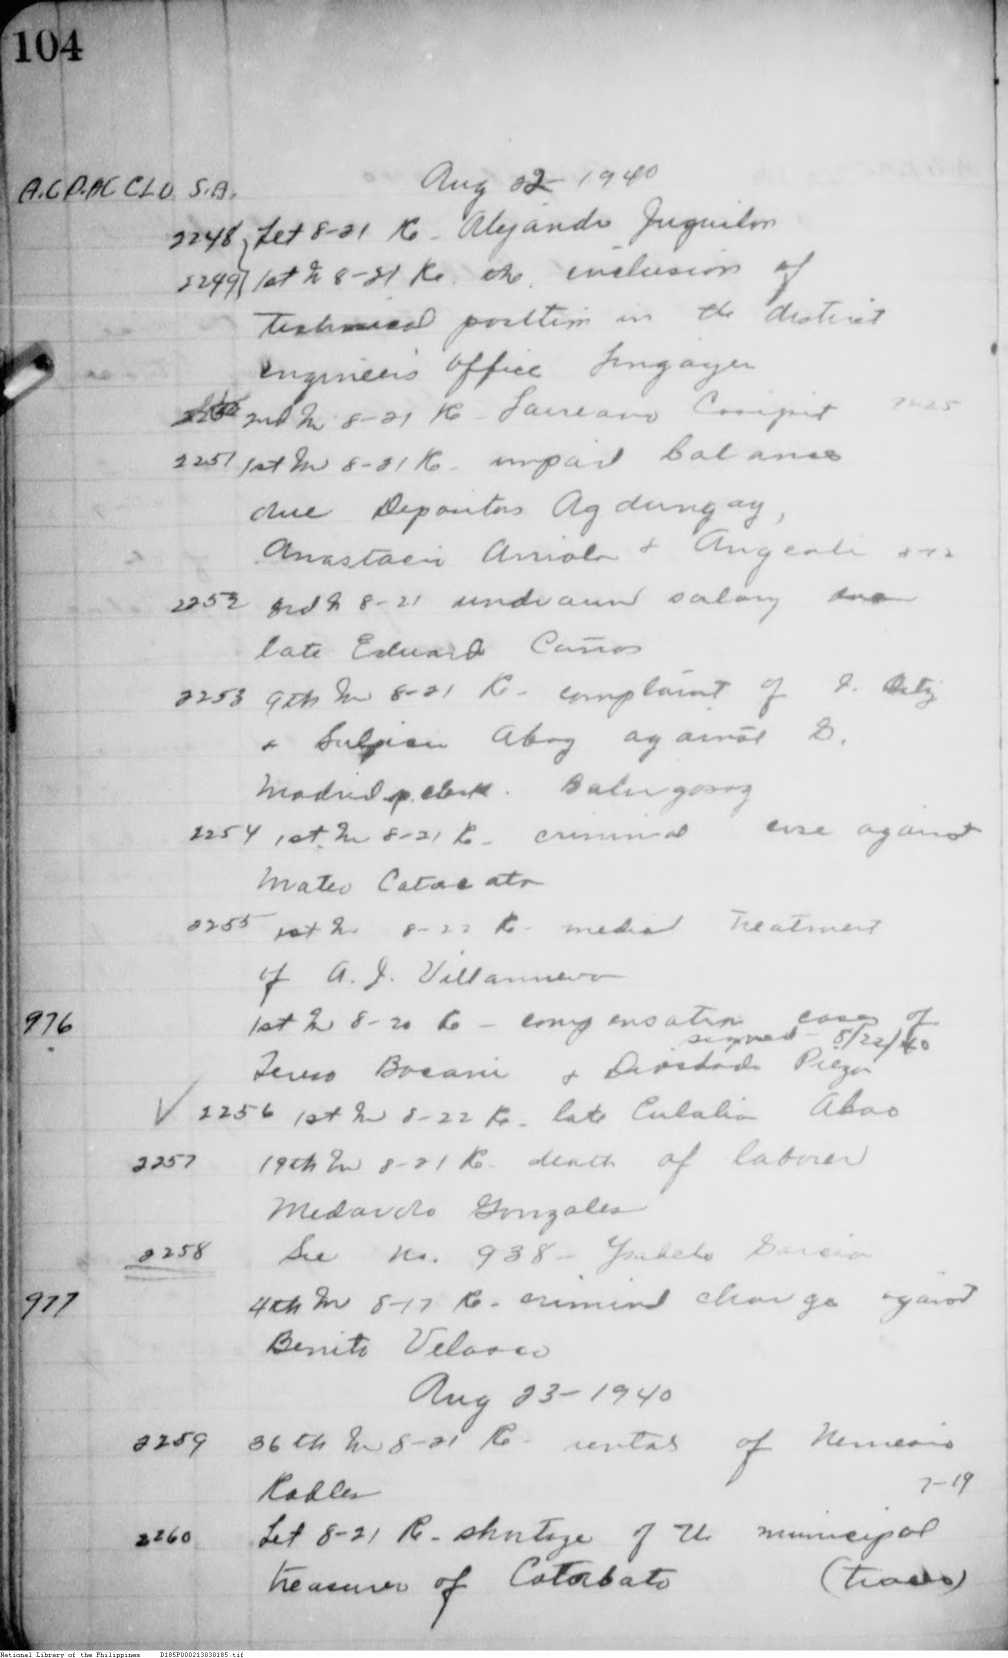 104
A.C D.AC CLO S.A.
Aug 22 - 1940
2248 Let 8-21 Re - Alejandro Juquilon
2249 1st In 8-21 Re. the inclusion of
technical position in the district
engineer's office Lingayen
2nd In 8-21 Re - Laureano
2251 1st In 8-21 Re - unpaid balances
due Depositors Agdungay,
Anastacio Arriola +
2252 3rd In 8-21 undrawn salary
late Eduardo Cañas
2253 9th In 8-21 Re - complaint of
+ Sulpicio Abay against G.
Madrid p. clerk.
2254 1st In 8-21 Re - criminal case against
Mateo Catacata
2255 1st In 8-22 Re - medical treatment
of A. J. Villanueva
976 1st In 8-20 Re - compensation cases of
signed - 8/22/40
+ Diosdado
2256 1st In 8-22 Re - late Eulalia Abao
2257 19th In 8-21 Re - death of laborer
Medardo Gonzales
2258 See No. 938 - Ysabelo Garcia
977 4th In 8-17 Re - criminal charge against
Benito Velasco
Aug 23 - 1940
2259 36th In 8-21 Re - rentals of Nemesio
Robles 7-19
2260 Let 8-21 Re - shortage of the municipal
treasurer of Cotabato (trans)
National Library of the Philippines D185P000213030185.tif